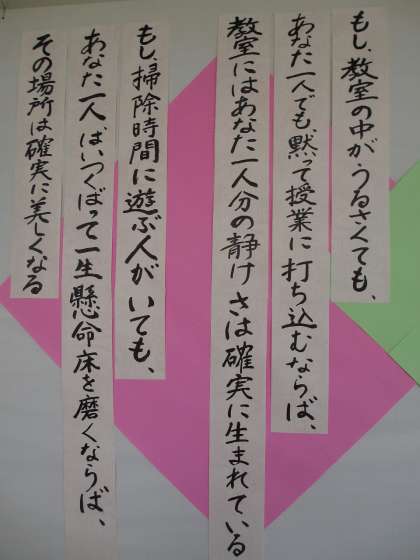 もし、教室の中がうるさくても、
あなた一人でも黙って授業に打ち込むならば、
教室にはあなた一人分の静けさは確実に生まれている
もし、掃除時間に遊ぶ人がいても、
あなた一人はいつくばって一生懸命床を磨くならば、
その場所は確実に美しくなる